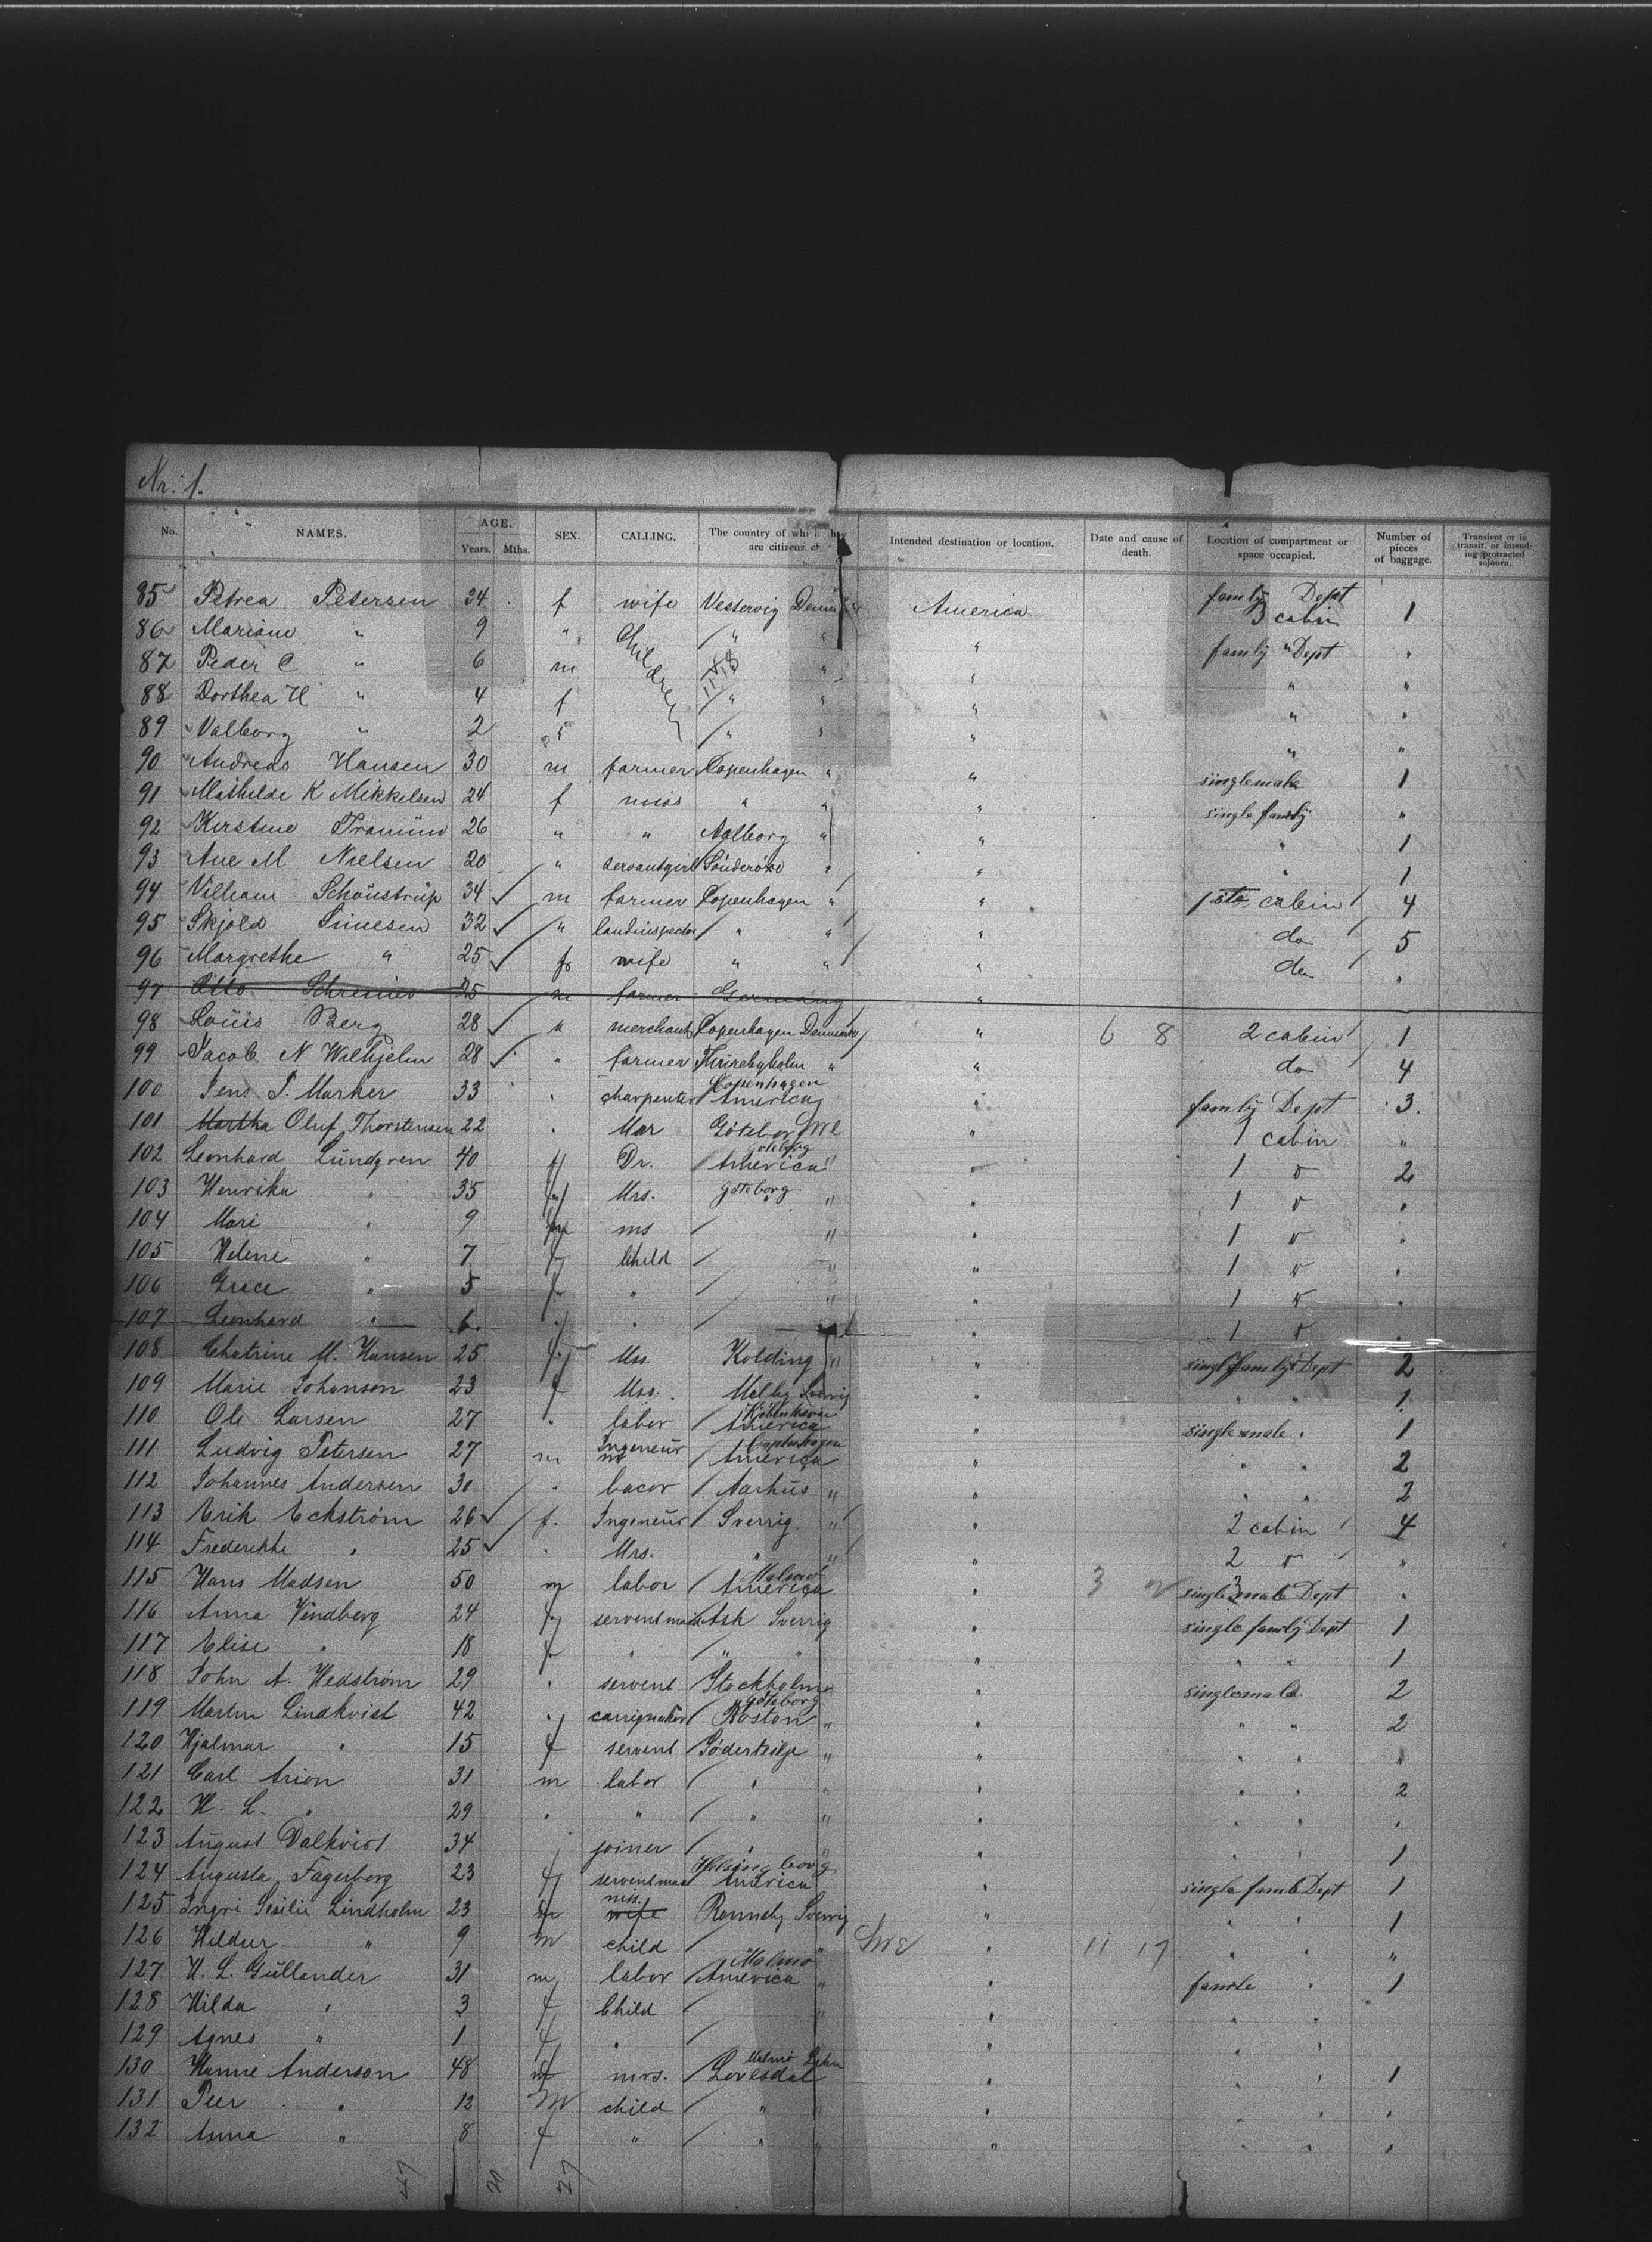 Nr. 1.
No. NAMES. AGE. Years. Mths. SEX. CALLING. The country of which they are citizens, Intended destination or location. Date and cause of death. Location of compartment or space occupied. Number of pieces of baggage. Transient or in transit, or intending protracted sojourn.
85 Petrea Petersen 34 f wife Vestervig America family Dept 3 cabin 1
86 Mariane " 9 " Children " " " family " Dept "
87 Peder C " 6 m " " " "
88 Dorthea H " 4 f " " " " "
89 Valborg " 2 " " " " "
90 Andreas Hansen 30 m farmer Copenhagen " " singlemale 1
91 Mathilde K Mikkelsen 24 f miss " " " single family "
92 Kirstine 26 " " Aalborg " " " 1
93 Ane M Nielsen 20 " servantgirl " " " 1
94 Villiam Schoustrüp 34 m farmer Copenhagen " " 1ste cabin 4
95 Skjold Simesen 32 " landinspector " " " do 5
96 Margrethe " 25 f wife " " " do "
97 Otto Schreiner 25 m farmer Germany "
98 Loüis Berg 28 " merchant Copenhagen Denmark " 6 8 2 cabin 1
99 Jacob N Walhjelm 28 " farmer " " do 4
100 Jens P. Marker 33 " charpenter Copenhagen America " family Dept 3.
101 Martha Oluf Thorstensen 22 " Mar Götebor Swe " 1 cabin "
102 Leonhard Lündgren 40 Dr. Göteborg America " " 1 2
103 Henrika " 35 Mrs. Göteborg " " 1 "
104 Mari " 9 ms " " 1 "
105 Helene " 7 f Child " " 1 "
106 Grace " 5 f " " " 1 "
107 Leonhard " 6 " " 1 "
108 Chatrine M. Hansen 25 f Mss. Kolding " " single family Dept 2
109 Marie Johanson 23 f Mss. Melby Sverrig " " " 1
110 Ole Larsen 27 " labor Kjöbenhavn America " single male " 1
111 Ludvig Petersen 27 m Ingeneür Copenhagen America " " " 2
112 Johannes Andersen 30 " bacor Aarhüs " " " " 2
113 Erik Eckström 26 f. Ingeneür Sverrig " " 2 cabin 4
114 Frederikke " 25 " Mrs. " " " 2 "
115 Hans Madsen 50 m labor Malmö America " 3 single male Dept "
116 Anna Vindberg 24 f Ask Sverrig " single family Dept 1
117 Elise " 18 f " " " " " " 1
118 John A. Hedström 29 " servent Stockholm " singlemale 2
119 Martin Lindkvist 42 " Göteborg Boston " " " " 2
120 Hjalmar " 15 f servent Södertelje " " " " "
121 Carl Arion 31 m labor " " " " " 2
122 H. L. " 29 " " " " " " " "
123 Aügust Dalkvist 34 joiner " " " " " 1
124 Augusta Fagerborg 23 f Helsingborg America " single Dept 1
125 Ingri Sesilie Lindholm 23 mss. wife Ronneby Sverrig " " " 1
126 Hildur " 9 m child " Swe " 11 17 " " "
127 H. L. Güllander 31 m labor Malmö America " " " 1
128 Hilda " 3 f Child " " " "
129 Agnes " 1 f " " " "
130 Hanne Anderson 48 mrs. Malmö " " 1
131 Peer " 12 m child " " " " " "
132 Anna " 8 f " " " " " " "
47 20 27